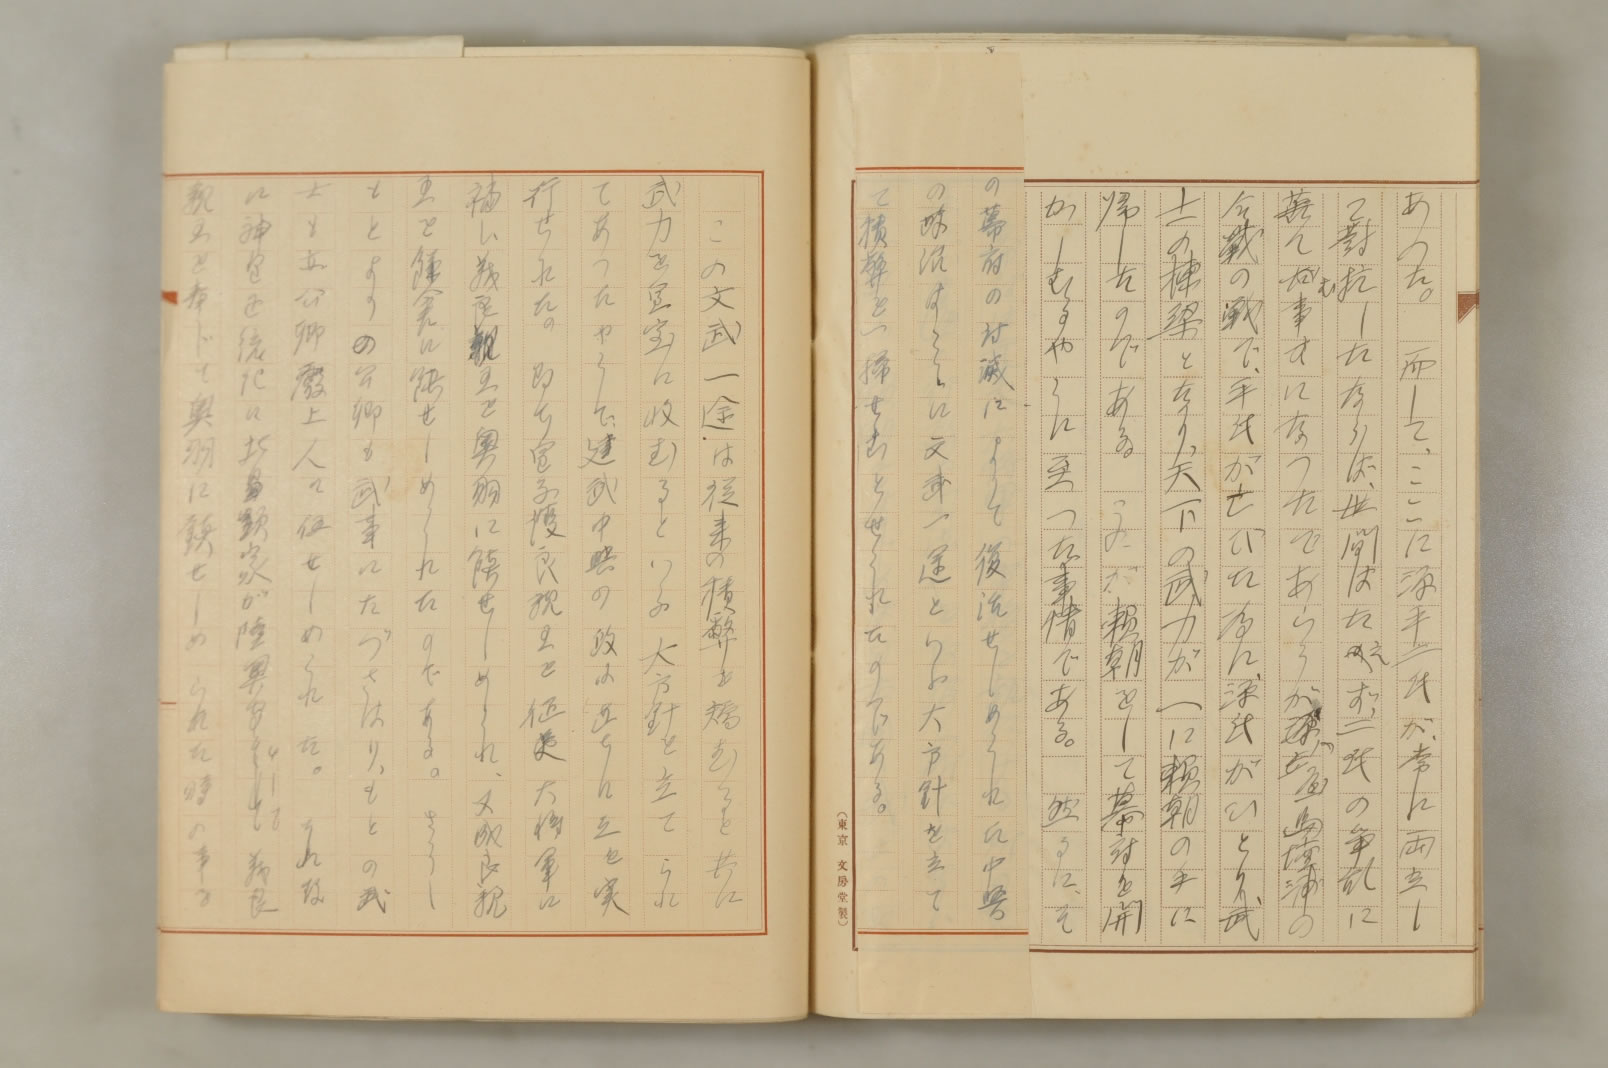 あつた。而して、ここに源平二氏が、常に両立し
て対抗したならば、世間はたえず二氏の争乱に
苦んだ事すになつたであらうが、壇ノ浦の
合戦の戦で、平氏がせびたために、源氏がひとり武
士の棟梁となり、天下の武力が一に頼朝の手に
帰したのである。これが頼朝をして幕府を開
かしむるやうに至つた事情である。然るに、そ
の幕府の討滅によつて後治せしめられ、中興
の政治すゝに文武一途といふ大方針を立て
て積弊を一掃せむとせられたのである。
(東京 文房堂製)
この文武一途は従来の積弊を矯むると共に
武力を皇室に収むるといふ大方針を立てられ
てあつたやうで、建武中興の政は直ちに之を実
行せられた。即ち皇子護良親王を征夷大将軍に
補し、義良親王を奥羽に鎮せしめられ、又成良親
王を鎌倉に鎮せしめられたのである。さうし
もとよりの公卿も武事にたづさはり、もとの武
士も亦公卿殿上人に伍せしめられた。それ故
に神皇正統記に北畠顕家が陸奥守として義良
親王を奉じて奥羽に鎮せしめられた時の事を